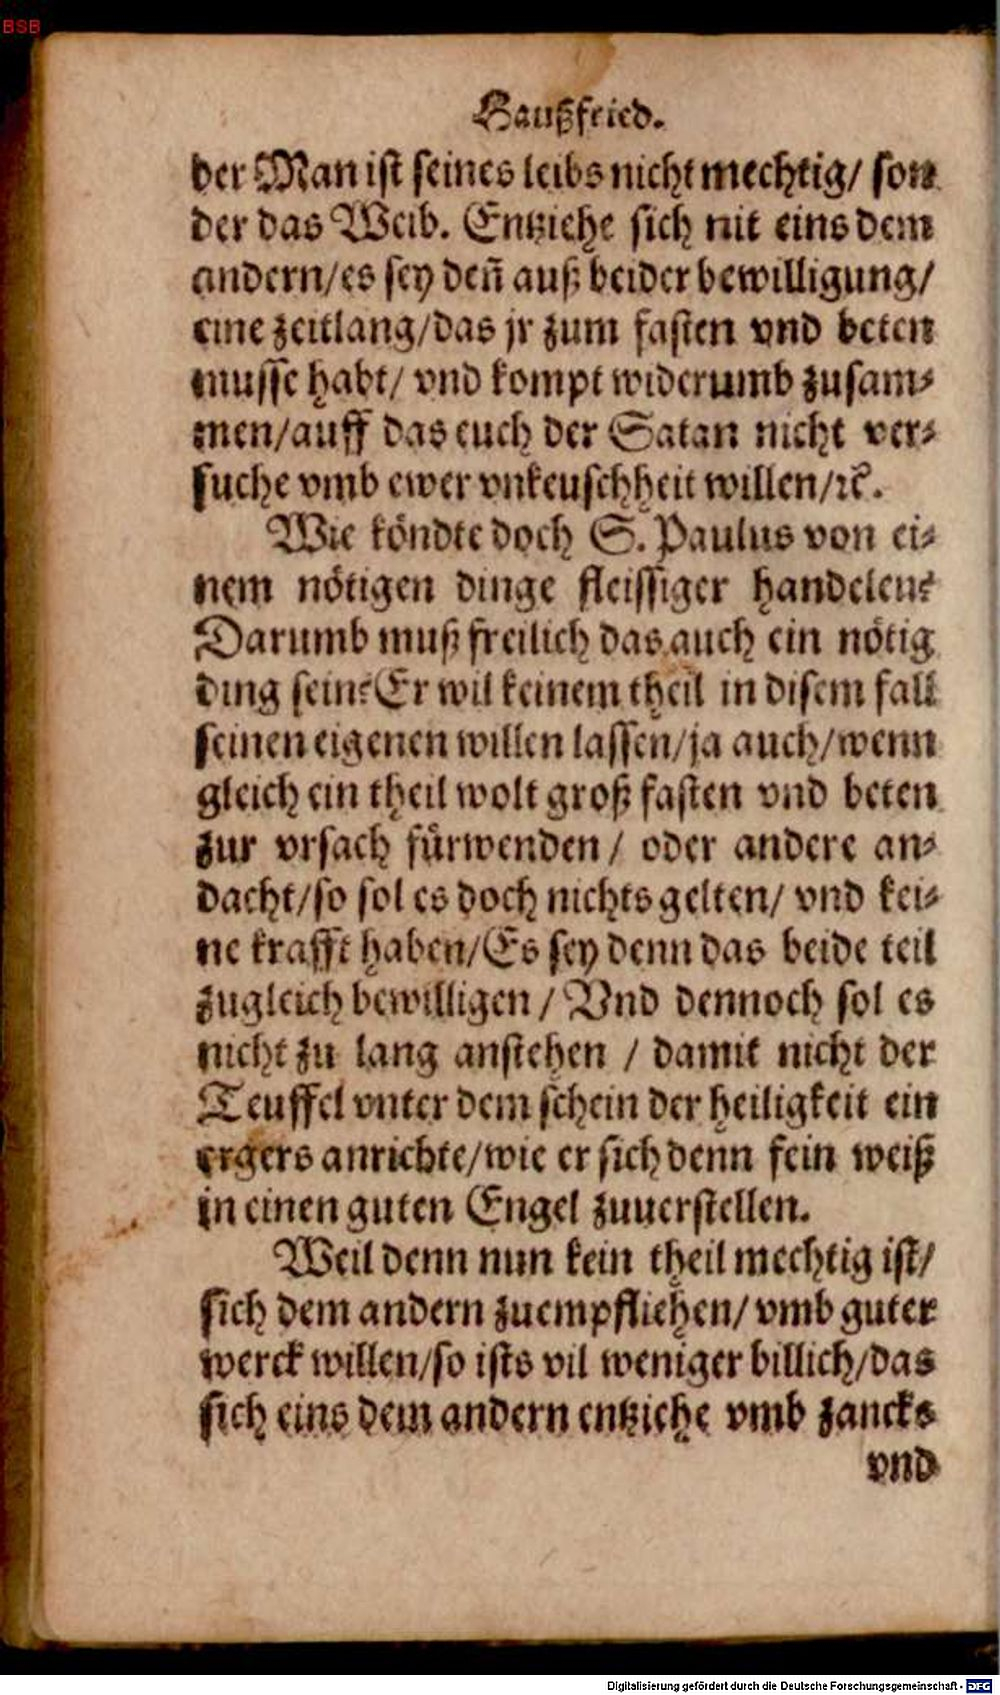 BSB
Haußfried.
der Man ist seines leibs nicht mechtig/ son
der das Weib. Entziehe sich nit eins dem
andern/es sey deñ auß beider bewilligung/
eine zeitlang/das jr zum fasten vnd beten
musse habt/ vnd kompt widerumb zusam⸗
men/auff das euch der Satan nicht ver⸗
suche vmb ewer vnkeuschheit willen/ꝛc̃.
Wie köndte doch S. Paulus von ei⸗
nem nötigen dinge fleissiger handelen?
Darumb muß freilich das auch ein nötig
ding sein? Er wil keinem theil in disem fall
seinen eigenen willen lassen/ja auch/wenn
gleich ein theil wolt groß fasten vnd beten
zur vrsach fürwenden/ oder andere an⸗
dacht/so sol es doch nichts gelten/ vnd kei⸗
ne krafft haben/Es sey denn das beide teil
zugleich bewilligen/ Vnd dennoch sol es
nicht zu lang anstehen / damit nicht der
Teuffel vnter dem schein der heiligkeit ein
ergers anrichte/wie er sich denn fein weiß
in einen guten Engel zuuerstellen.
Weil denn nun kein theil mechtig ist/
sich dem andern zuempfliehen/ vmb guter
werck willen/so ists vil weniger billich/das
sich eins dem andern entziehe vmb zancks
vnd
Digitalisierung gefördert durch die Deutsche Forschungsgemeinschaft - DFG